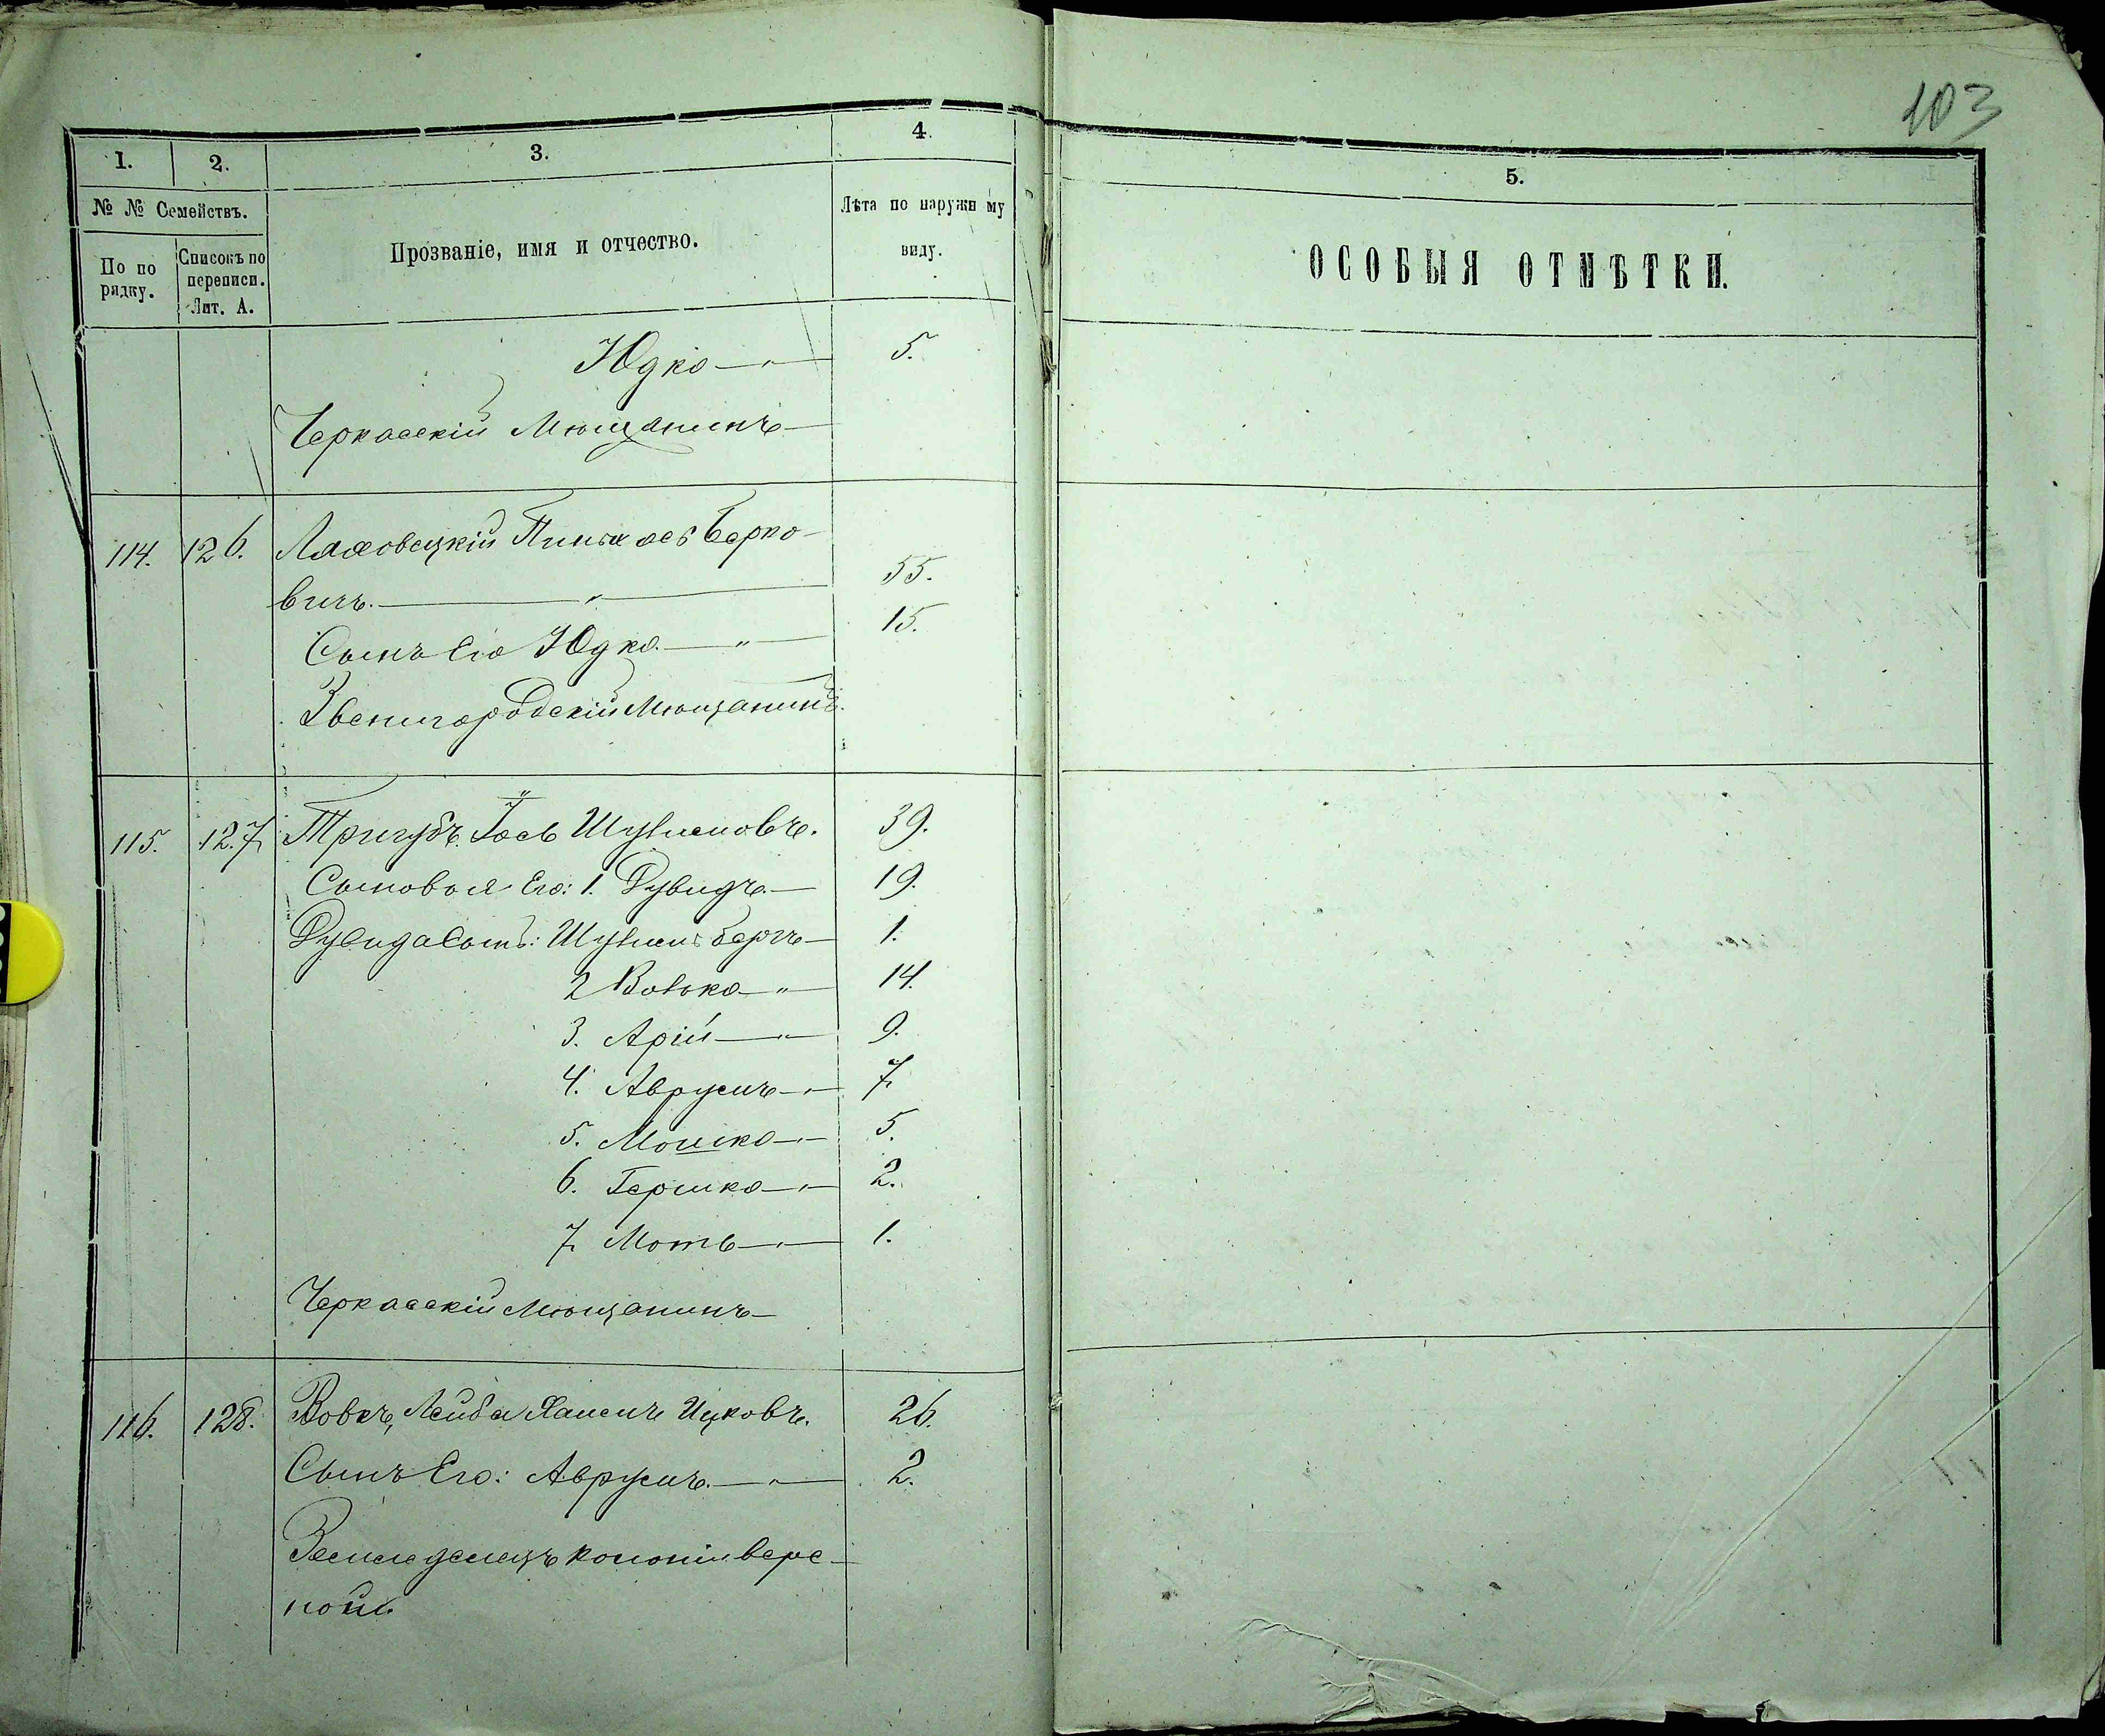 103
1. 2. 3. 4. 5.
№ № Семействъ.
По по рядку.
Списокъ по переписи. Лит. А.
Прозваніе, имя и отчество.
Лѣта по наружн му виду.
ОСОБЫЯ ОТМѢТКИ.
Юдко 5.
Черкасскій Мѣщанинъ
114. 126. Ляховецкій Пинхасъ Берко-
вичъ. 55.
Сынъ Его Юдко 15.
Звенигородскій Мѣщанинъ.
115. 127. Тригубъ Іось Шулимовъ. 39.
Сыновья Его: 1. Дувидъ 19.
Дувида Сынъ: Шулимъ Беръ 1.
2 Волько 14.
3. Арій 9.
4. Аврумъ 7.
5. Мошко 5.
6. Гершко 2.
7. Моть 1.
Черкасскій Мѣщанинъ
116. 128. Вовкъ, Лейба Хаимъ Ицковъ. 26.
Сынъ Его: Аврумъ. 2.
Земледелецъ колоніи